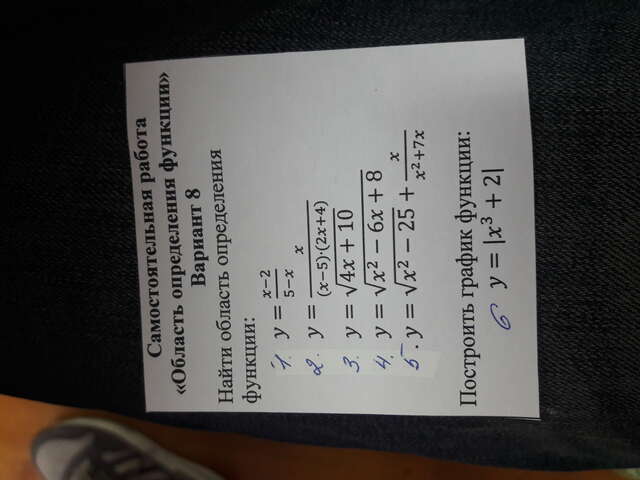 Самостоятельная работа
«Область определения функции»
Вариант 8
Найти область определения
функции:
1. y = \frac{x-2}{5-x}
2. y = \frac{x}{(x-5)·(2x+4)}
3. y = \sqrt{4x + 10}
4. y = \sqrt{x^2 - 6x + 8}
5. y = \sqrt{x^2 - 25} + \frac{x}{x^2+7x}
Построить график функции:
6 y = |x^3 + 2|